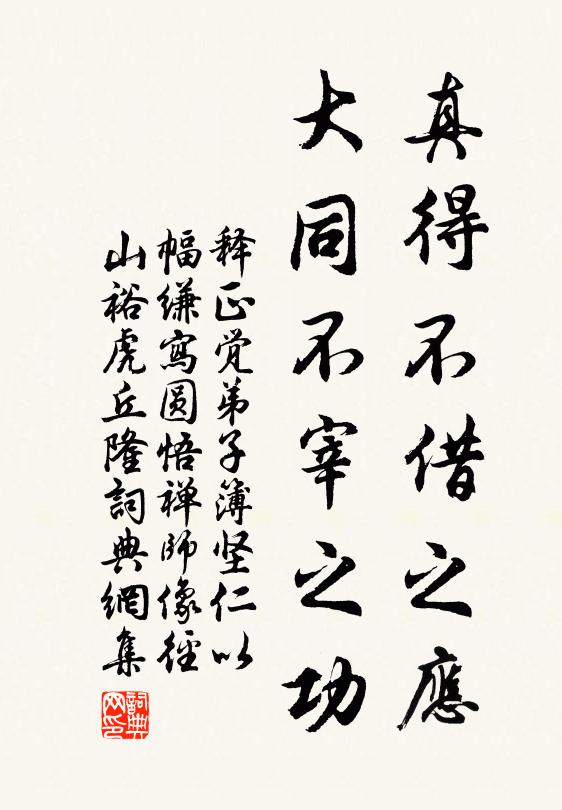 真得不借之應
大同不宰之功
释正觉弟子簿坚仁以
幅缣寫圆悟禅師像徑
山裕虎丘隆詞典網集
詞典网印